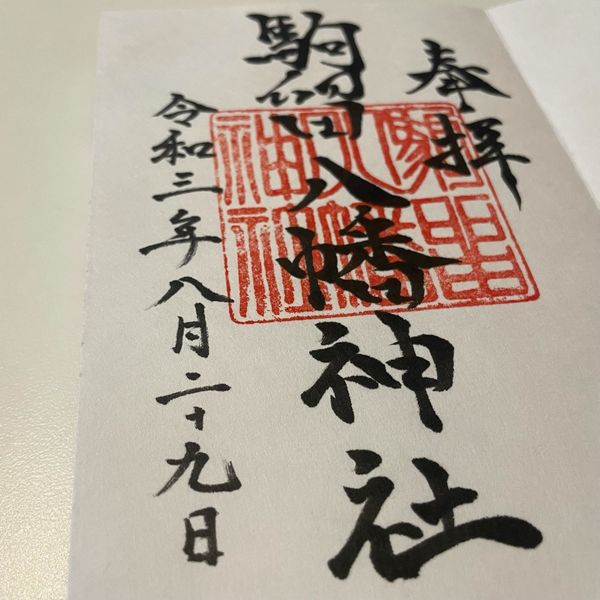 奉拝
駒留八幡神社
令和三年八月二十九日
駒留
八幡
神社